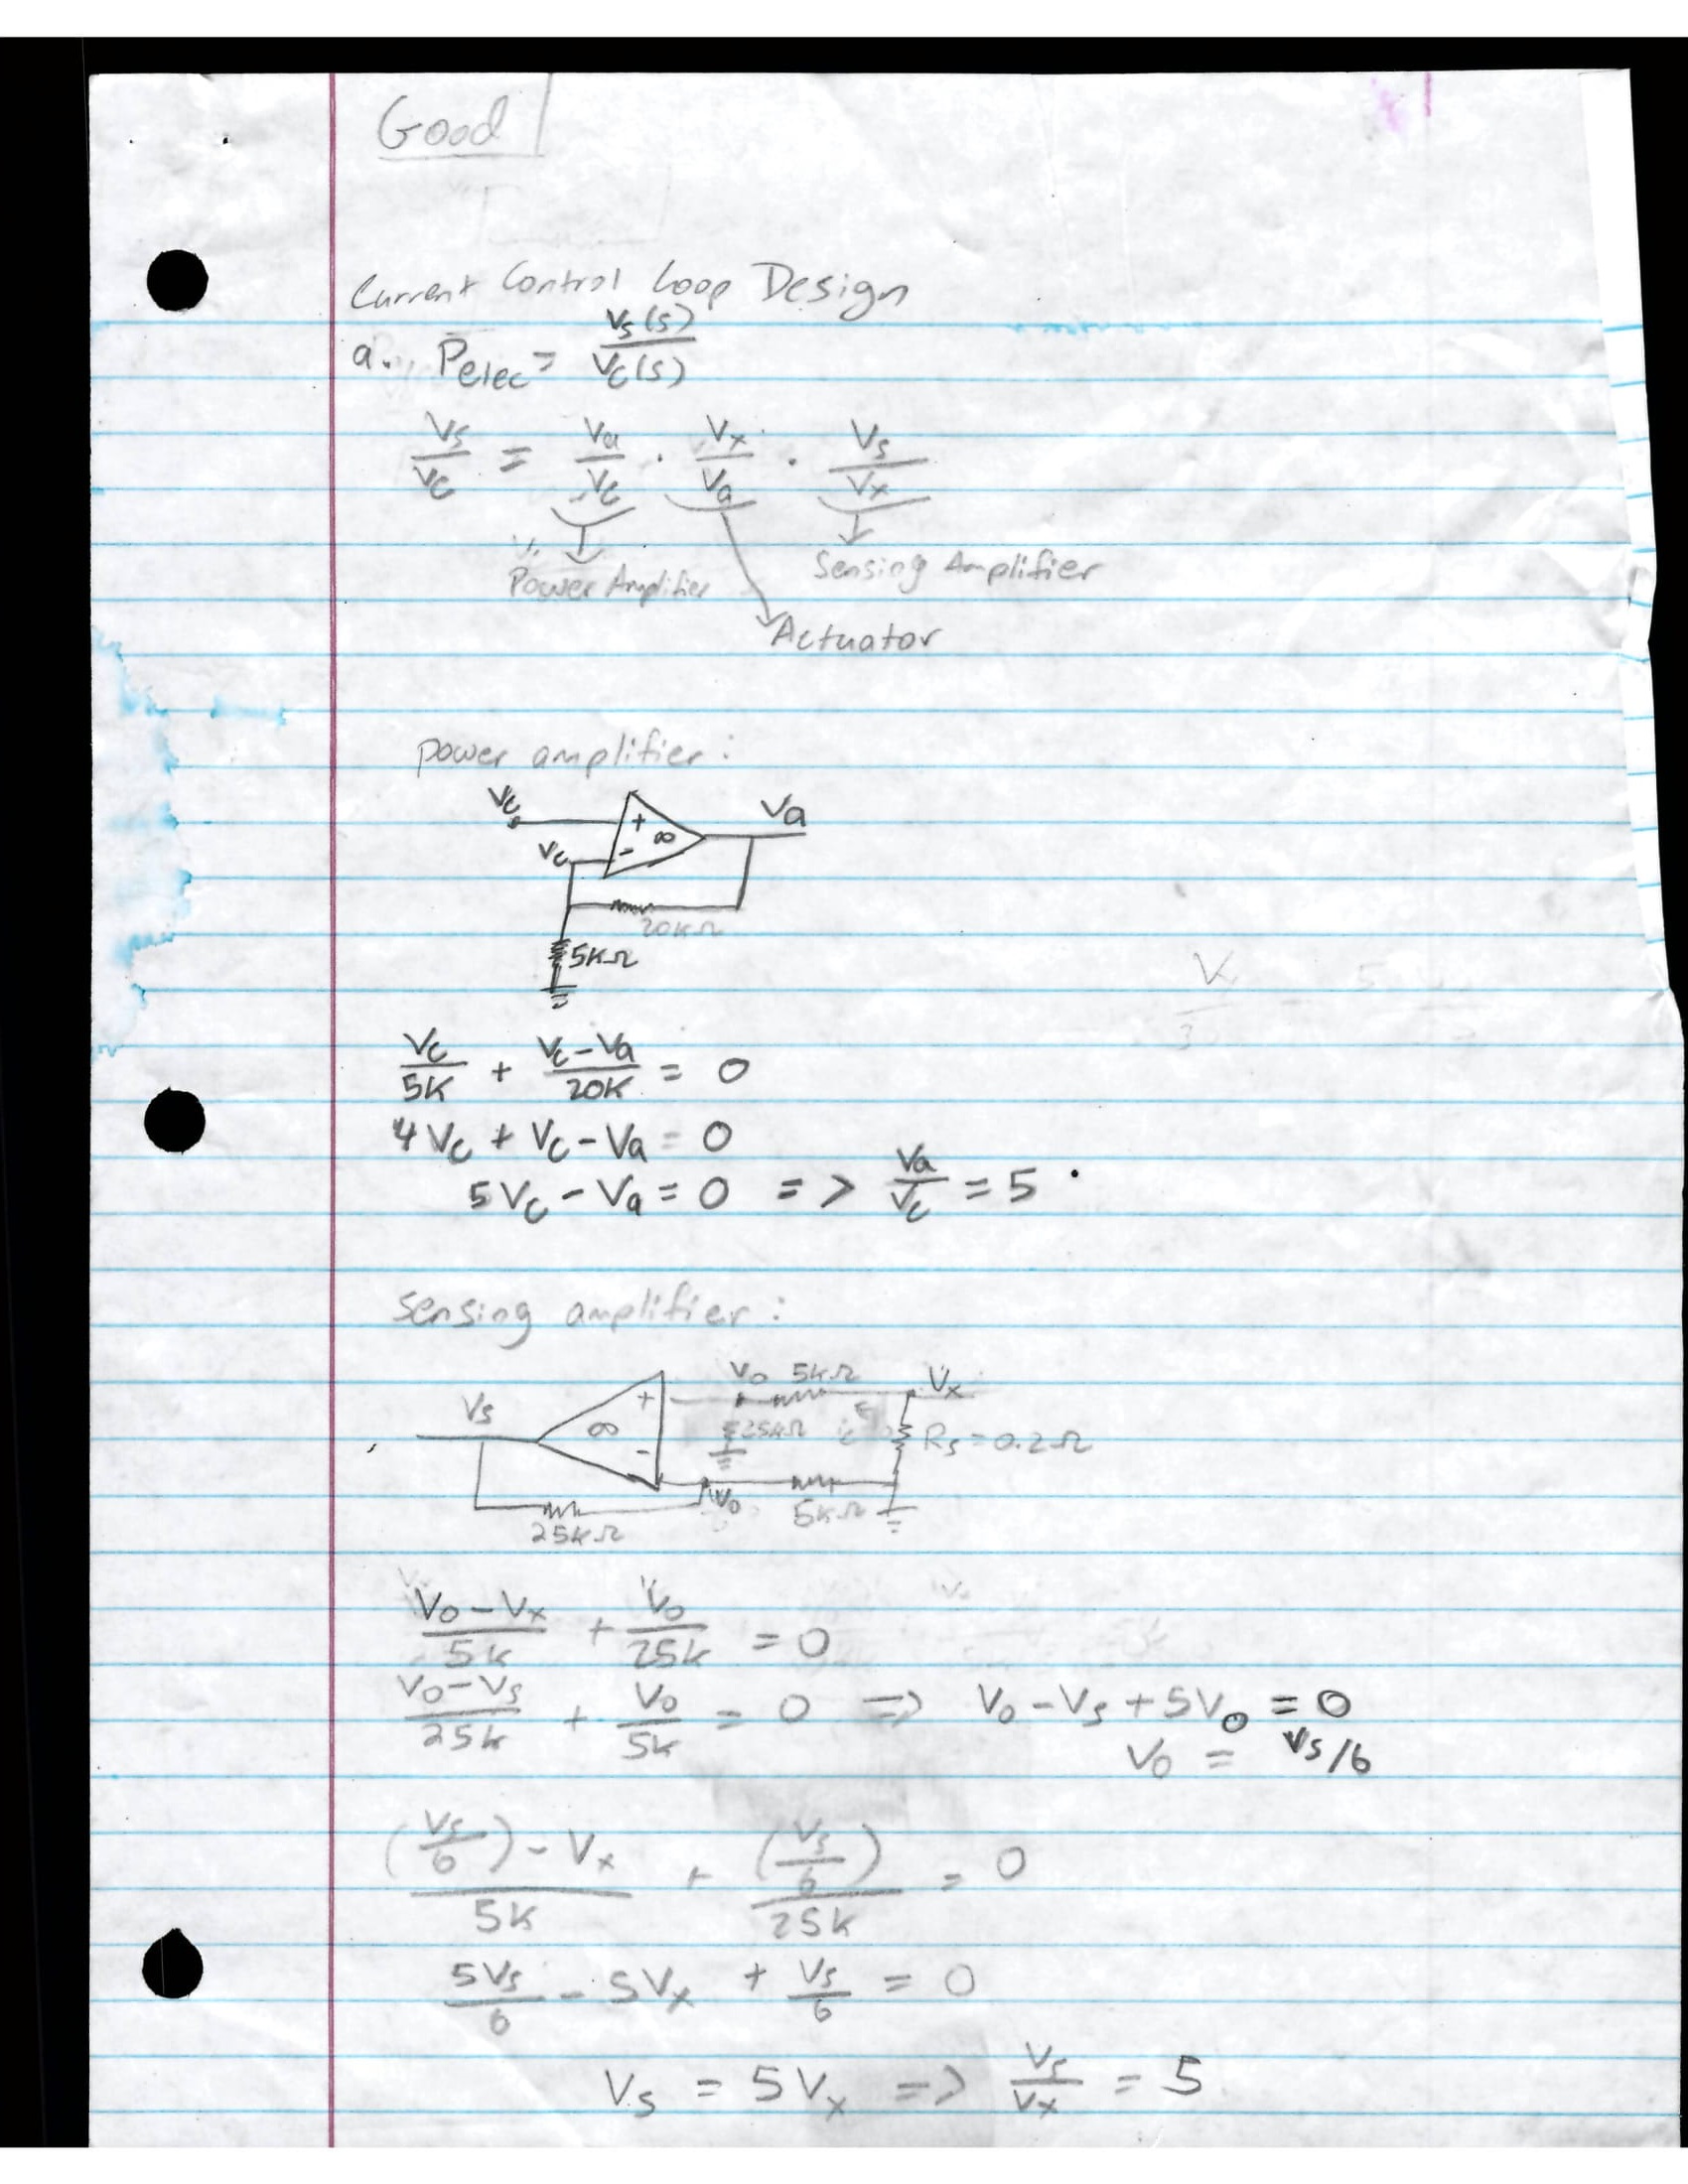 Good
Current Control Loop Design
a. Pelec = Vs(s)/Vc(s)
Vs/Vc = Va/Vc · Vx/Va · Vs/Vx
Sensing Amplifier
Power Amplifier
Actuator
power amplifier:
Vc + ∞ Va
Vc -
20kΩ
5kΩ
Vc/5K + (Vc-Va)/20K = 0
4Vc + Vc - Va = 0
5Vc - Va = 0 => Va/Vc = 5
Sensing amplifier:
Vo 5kΩ Vx
Vs ∞ + 25kΩ ic Rs = 0.2Ω
- Vo 5kΩ
25kΩ
(Vo-Vx)/5k + Vo/25k = 0
(Vo-Vs)/25k + Vo/5k = 0 => Vo - Vs + 5Vo = 0
Vo = Vs/6
((Vs/6) - Vx)/5K + (Vs/6)/25K = 0
5Vs/6 - 5Vx + Vs/6 = 0
Vs = 5Vx => Vs/Vx = 5